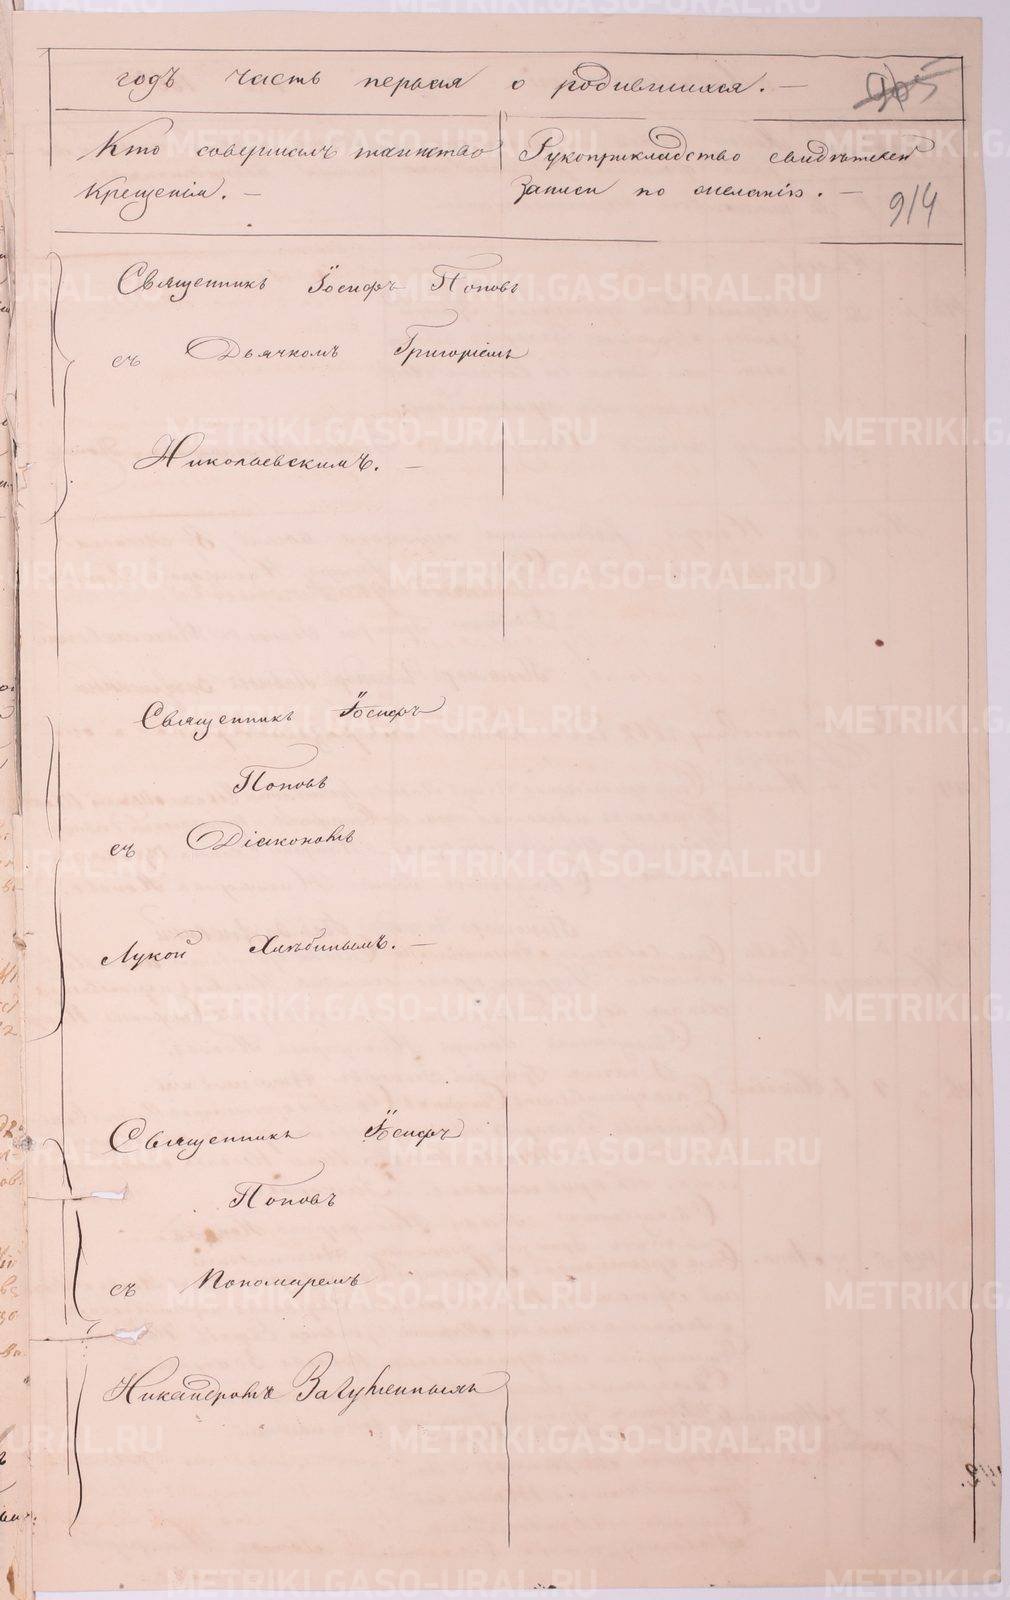 годъ часть первая о родившихся. —
Кто совершалъ таинство
Крещенія. —
Рукоприкладство свидѣтелей
записи по желанію. —
914
Священникъ Іосифъ Поповъ
съ Дьячкомъ Григоріемъ
Николаевскимъ. —
Священникъ Іосифъ
Поповъ
съ Діакономъ
Лукой Хлѣбинымъ. —
Священникъ Іосифъ
Поповъ
съ Пономаремъ
Никандромъ
METRIKI.GASO-URAL.RU